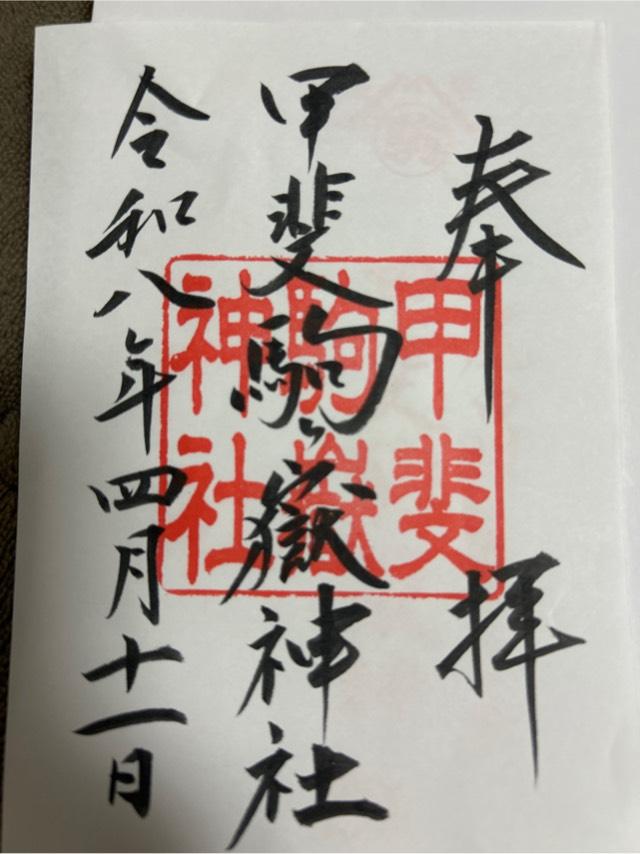 奉拝
甲斐駒ヶ嶽神社
令和八年四月十一日
甲斐
駒嶽
神社